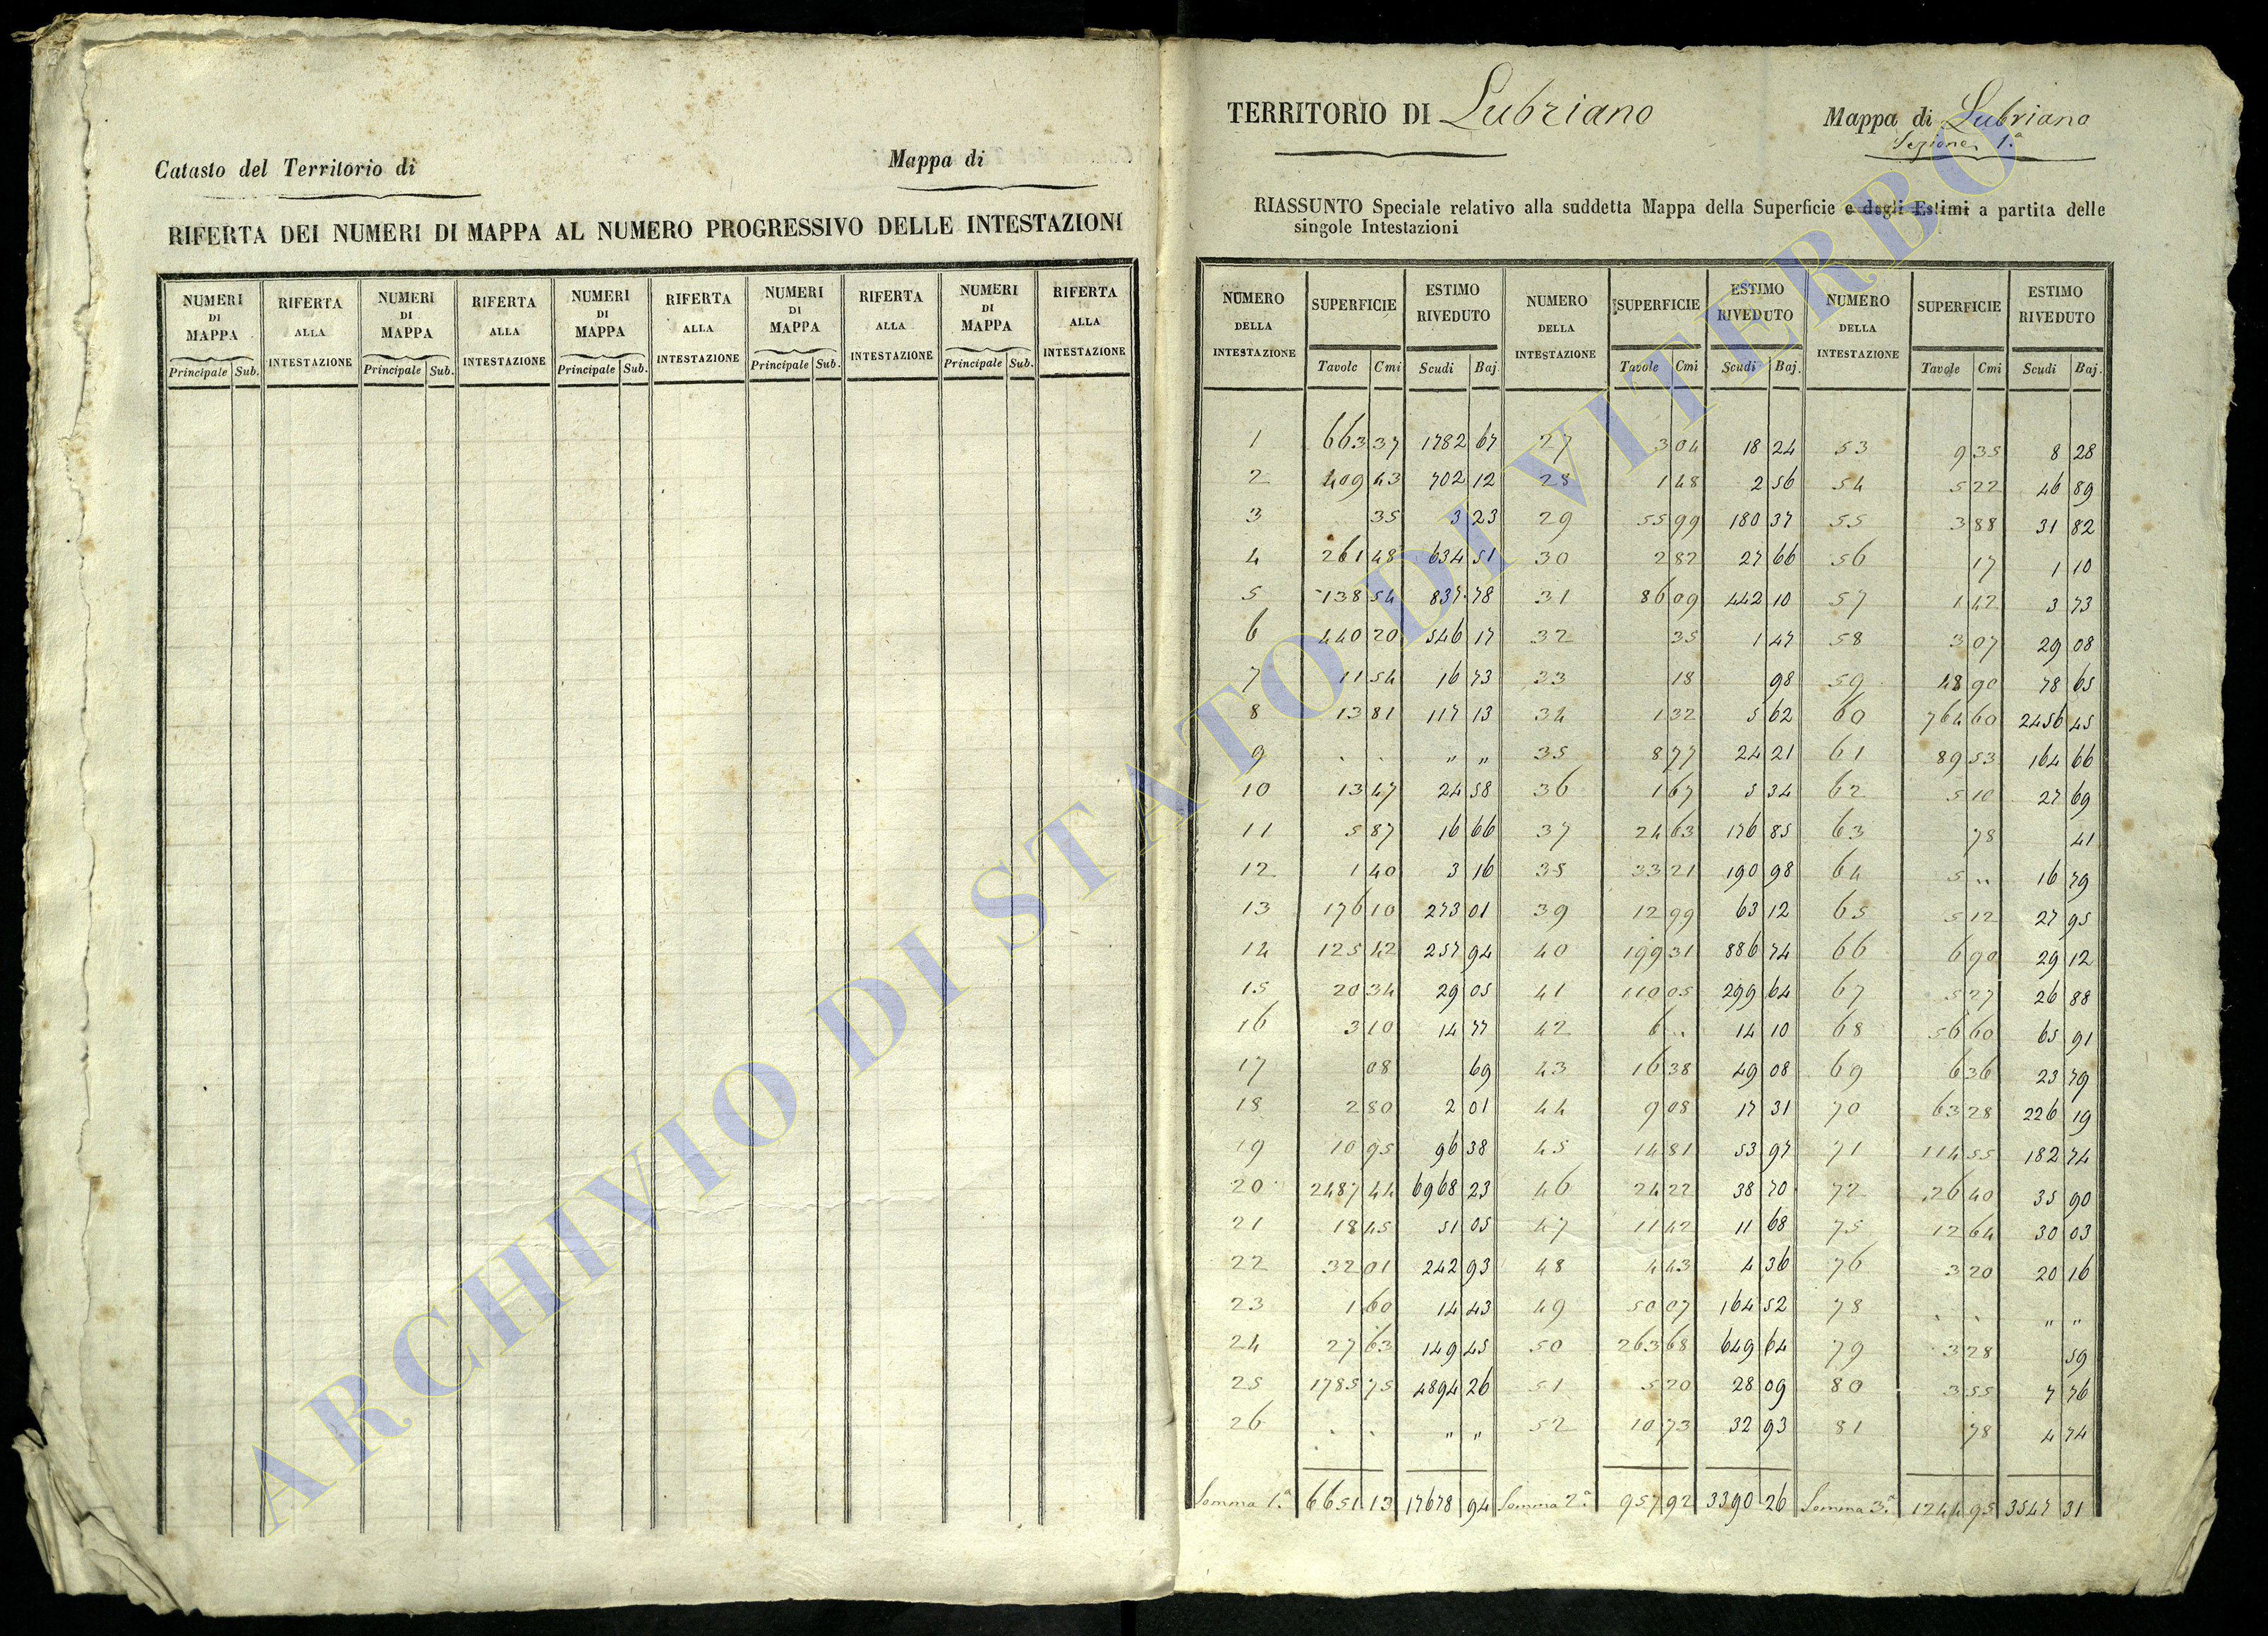 Catasto del Territorio di
Mappa di
RIFERTA DEI NUMERI DI MAPPA AL NUMERO PROGRESSIVO DELLE INTESTAZIONI
NUMERI DI MAPPA RIFERTA ALLA INTESTAZIONE NUMERI DI MAPPA RIFERTA ALLA INTESTAZIONE NUMERI DI MAPPA RIFERTA ALLA INTESTAZIONE NUMERI DI MAPPA RIFERTA ALLA INTESTAZIONE NUMERI DI MAPPA RIFERTA ALLA INTESTAZIONE
Principale Sub. Principale Sub. Principale Sub. Principale Sub. Principale Sub.
TERRITORIO DI Lubriano
Mappa di Lubriano
Sezione 1.a
RIASSUNTO Speciale relativo alla suddetta Mappa della Superficie e degli Estimi a partita delle
singole Intestazioni
NUMERO DELLA INTESTAZIONE SUPERFICIE ESTIMO RIVEDUTO NUMERO DELLA INTESTAZIONE SUPERFICIE ESTIMO RIVEDUTO NUMERO DELLA INTESTAZIONE SUPERFICIE ESTIMO RIVEDUTO
Tavole Cmi Scudi Baj. Tavole Cmi Scudi Baj. Tavole Cmi Scudi Baj.
1 663 37 1782 67 27 3 04 18 24 53 9 35 8 28
2 409 43 702 12 28 1 48 2 56 54 5 22 46 89
3 35 3 23 29 55 99 180 37 55 3 88 31 82
4 261 48 634 51 30 2 82 27 66 56 17 1 10
5 138 54 837 78 31 86 09 442 10 57 1 42 3 73
6 440 20 546 17 32 35 1 47 58 3 07 29 08
7 11 54 16 73 33 18 98 59 48 90 78 65
8 13 81 117 13 34 1 32 5 62 60 764 60 2456 45
9 . . " " 35 8 77 24 21 61 89 53 164 66
10 13 47 24 58 36 1 67 5 34 62 5 10 27 69
11 5 87 16 66 37 24 63 176 85 63 78 41
12 1 40 3 16 38 33 21 190 98 64 5 .. 16 79
13 176 10 273 01 39 12 99 63 12 65 5 12 27 95
14 125 42 257 94 40 199 31 886 74 66 6 90 29 12
15 20 34 29 05 41 110 05 299 64 67 5 27 26 88
16 3 10 14 77 42 6 .. 14 10 68 56 60 65 91
17 08 69 43 16 38 49 08 69 6 36 23 79
18 2 80 2 01 44 9 08 17 31 70 63 28 226 19
19 10 95 96 38 45 14 81 53 97 71 114 55 182 74
20 2487 44 6968 23 46 24 22 38 70 72 26 40 35 90
21 18 45 51 05 47 11 42 11 68 75 12 64 30 03
22 32 01 242 93 48 4 43 4 36 76 3 20 20 16
23 1 60 14 43 49 50 07 164 52 78 . . " "
24 27 63 149 45 50 263 68 649 64 79 3 28 59
25 1785 75 4894 26 51 5 20 28 09 80 3 55 7 76
26 . . " " 52 10 73 32 93 81 78 4 74
Somma 1.a 6651 13 17678 94 Somma 2.a 957 92 3390 26 Somma 3.a 1244 95 3547 31
ARCHIVIO DI STATO DI VITERBO